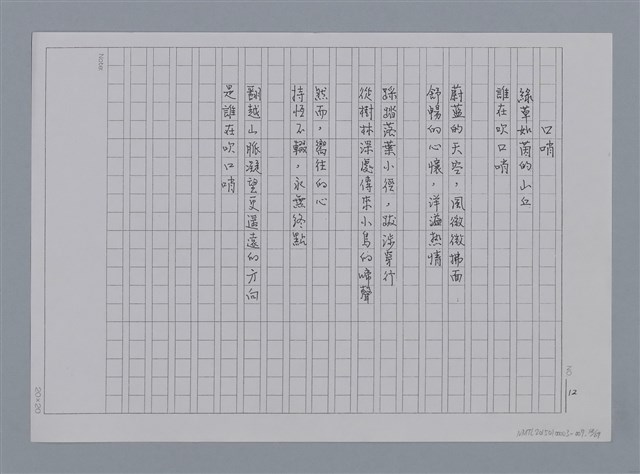 口哨
綠草如茵的山丘
誰在吹口哨
蔚藍的天空，風微微拂面
舒暢的心懷，洋溢熱情
踩踏落葉小徑，跋涉穿行
從樹林深處傳來小鳥的啼聲
然而，嚮往的心
持恆不輟，永無終點
翻越山脈凝望更遙遠的方向
是誰在吹口哨
Note
NO
12
20×20